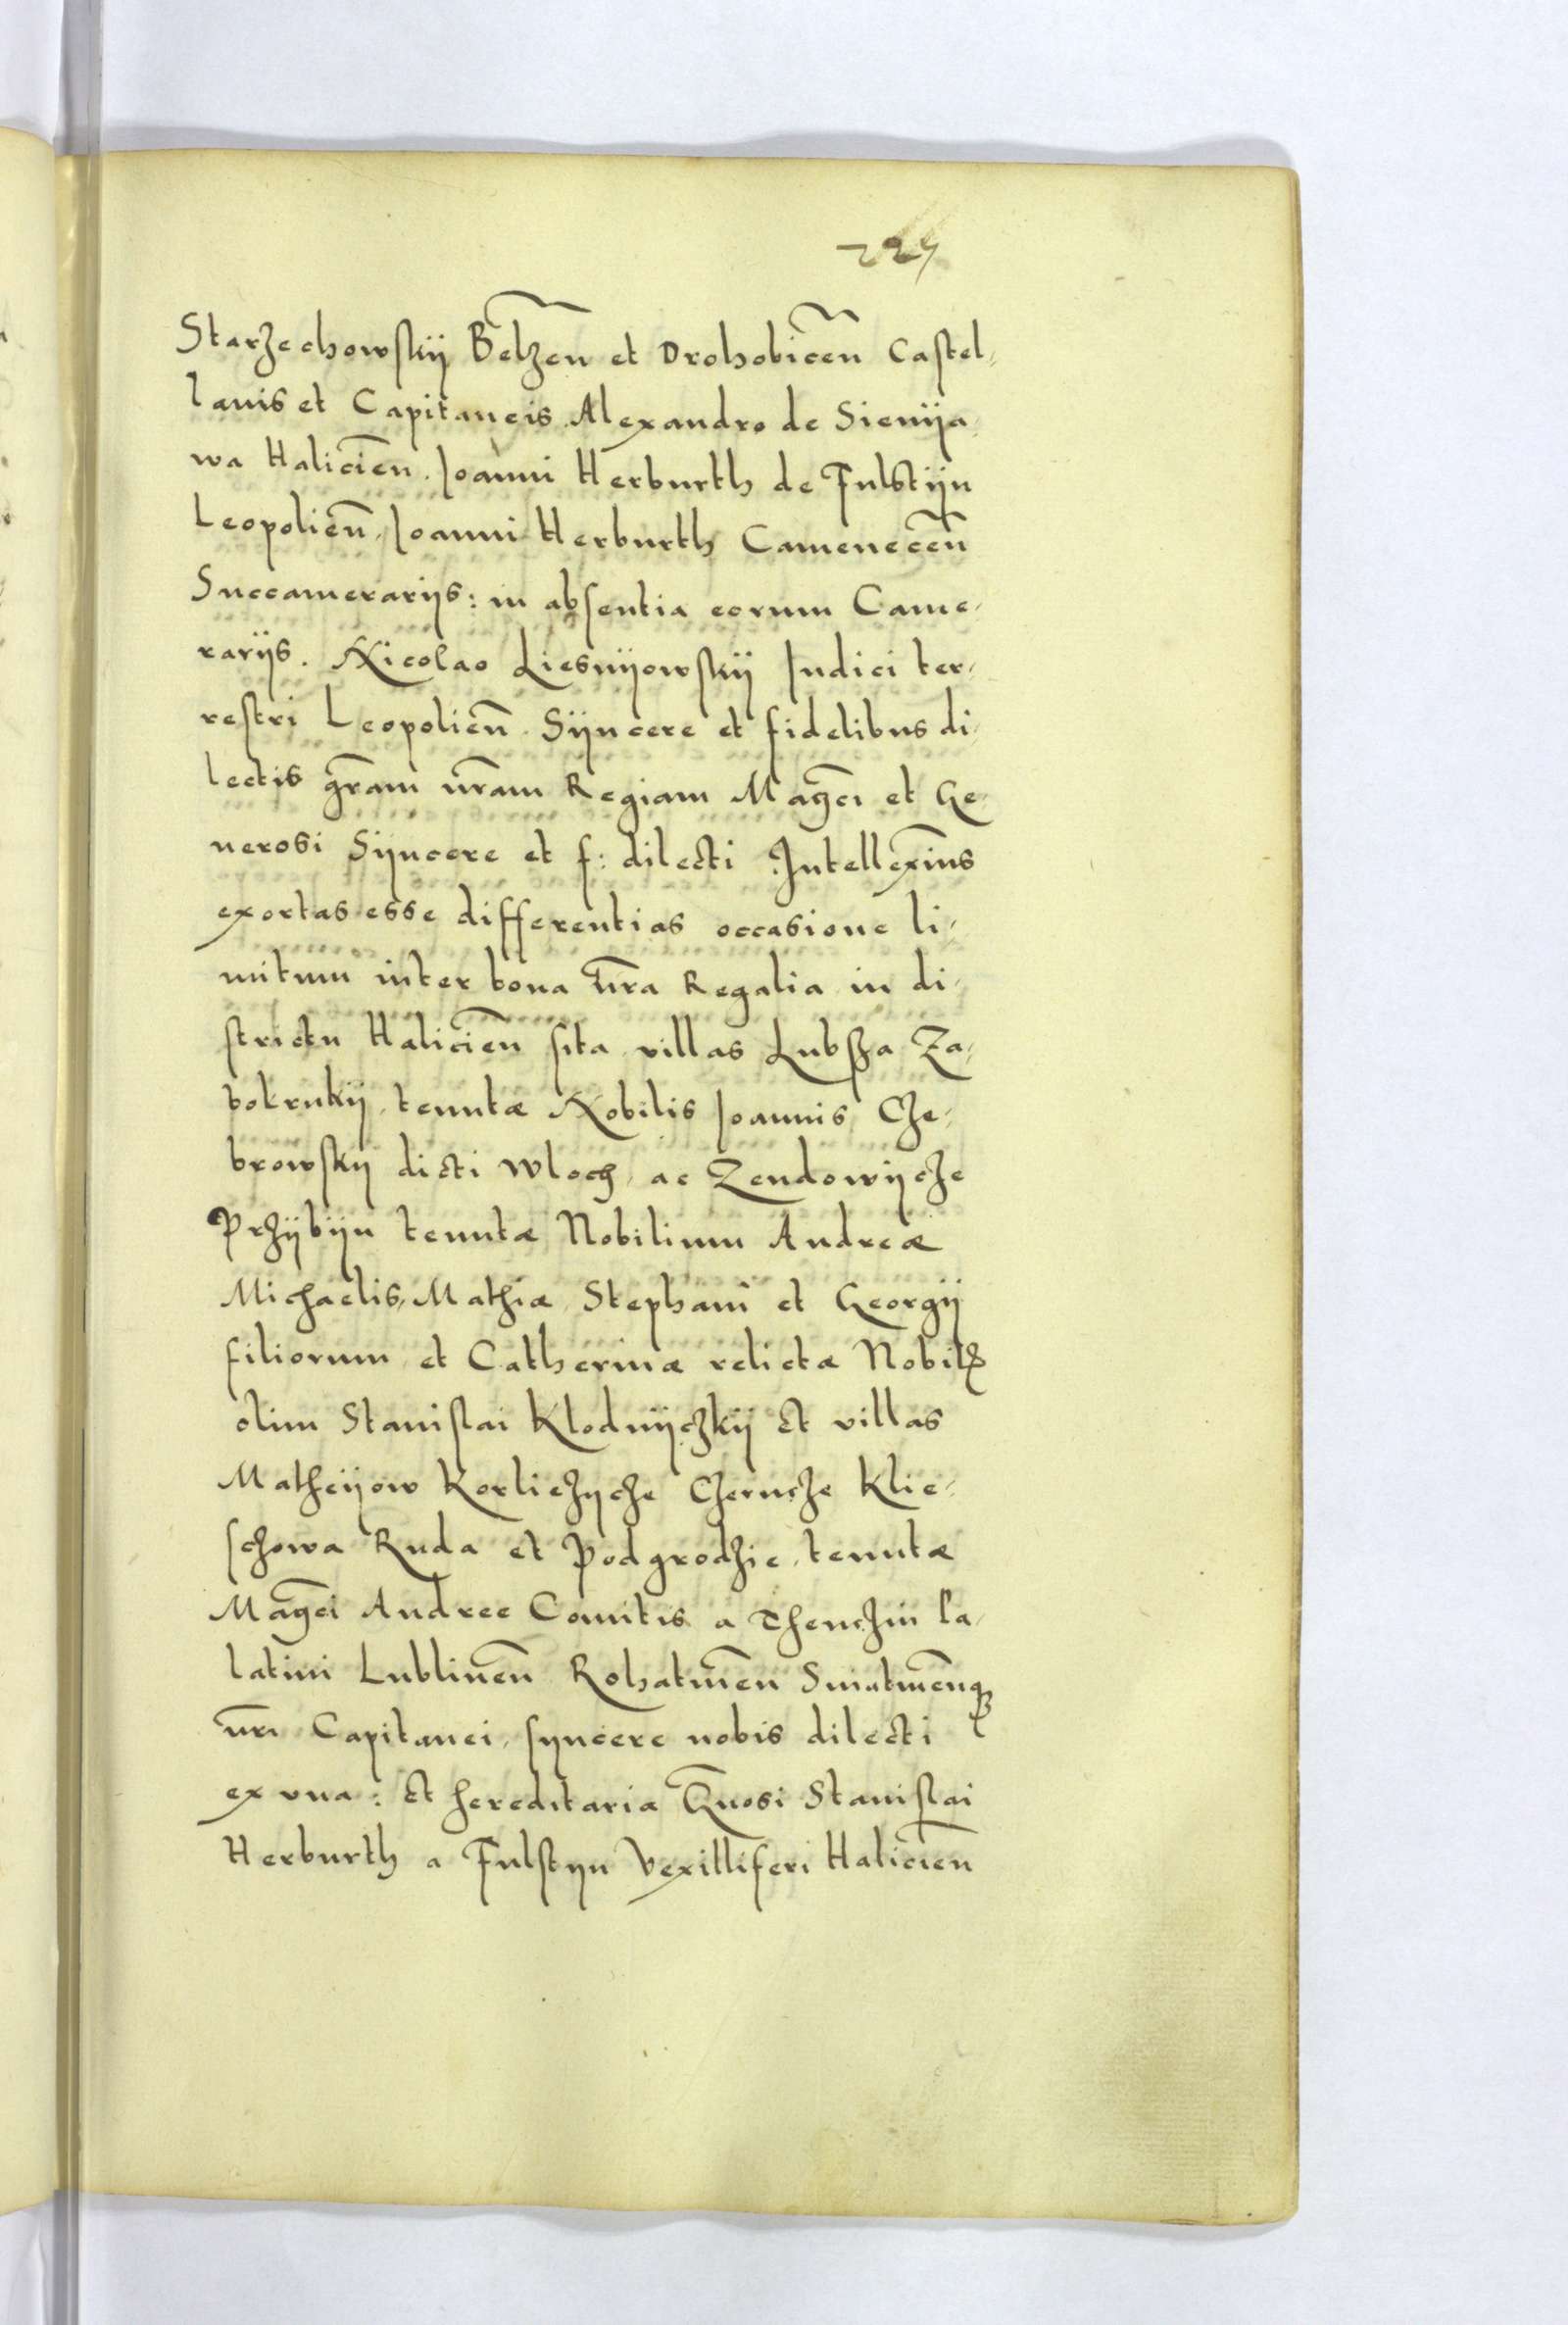 227
Starzechowskij Belzen̄ et Drohobicen̄ Castel-
lanis et Capitaneis Alexandro de Sienija
wa Halicien̄. Joanni Herburth de Fulstijn
Leopolien̄, Joanni Herburth Camenecen̄
Succamerarijs: in absentia eorum Came-
rarijs. Nicolao Liesnijowskij Judici ter-
restri Leopolien̄. Sijncere et fidelibus di-
lectis gr̄am nr̄am Regiam Maḡci et Ge-
nerosi Sijncere et f: dilecti Intellexim̄s
exortas esse differentias occasione li-
mitum inter bona nr̄a Regalia in di-
strictu Halicien̄ sita villas Lubsza Za-
bokrukij, tenutæ Nobilis Joannis Cze-
browskij dicti Wloch, ac Zendowijcze
Przijbijn tenutæ Nobilium Andreæ
Michaelis, Mathiæ, Stephani et Georgij
filiorum et Catherinæ relictæ Nobil
olim Stanislai Klodnijczkij Et villas
Matheijow Korliczijcze Czerucze Klie-
schowa Ruda et Podgrodzie, tenutæ
Maḡci Andree Comitis a Thenczin Pa-
latini Lublinen̄ Rohatinen̄ Sniatinen̄q
nr̄i Capitanei, sijncere nobis dilecti
ex vna: Et hereditaria Gn̄osi Stanislai
Herburth a Fulstijn Vexilliferi Halicien̄